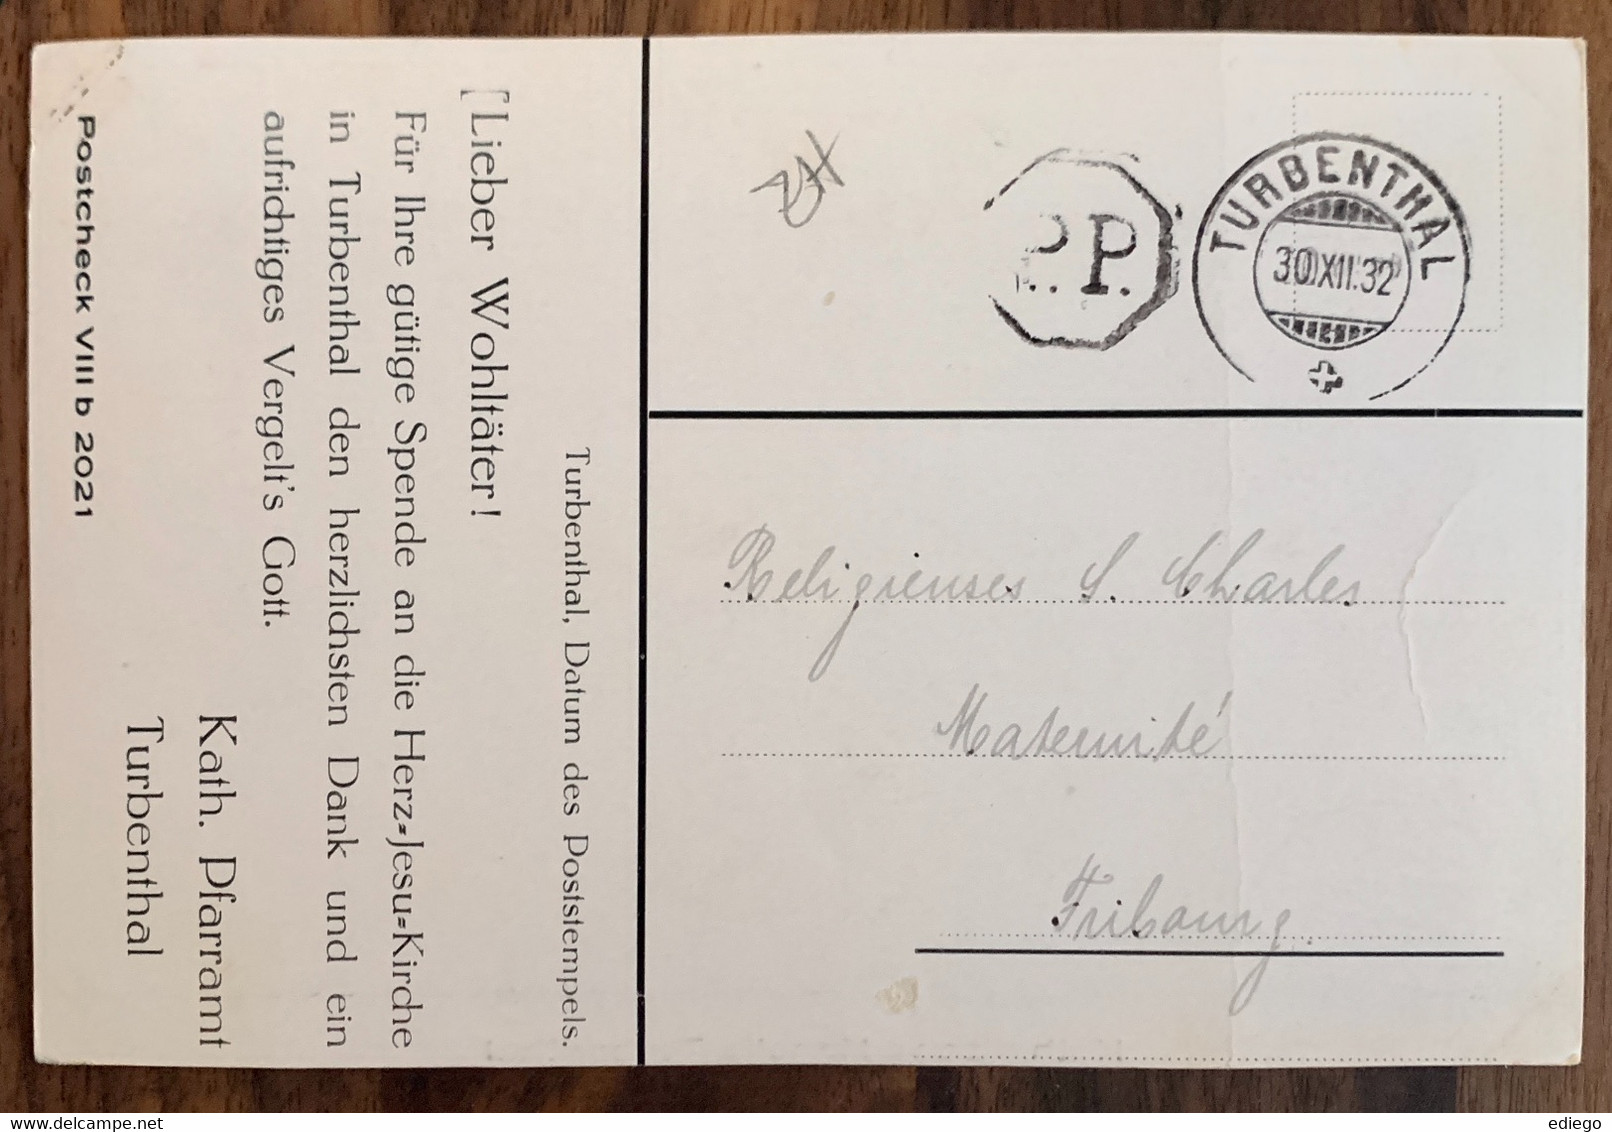 Turbenthal, Datum des Poststempels.
[Lieber Wohltäter!
Für Ihre gütige Spende an die Herz=Jesu=Kirche
in Turbenthal den herzlichsten Dank und ein
aufrichtiges Vergelt's Gott.
Kath. Pfarramt
Turbenthal
Postcheck VIII b 2021
ZH
P.P.
TURBENTHAL
30.XII.32
Religieuses S. Charles
Maternité
Fribourg.
ediego